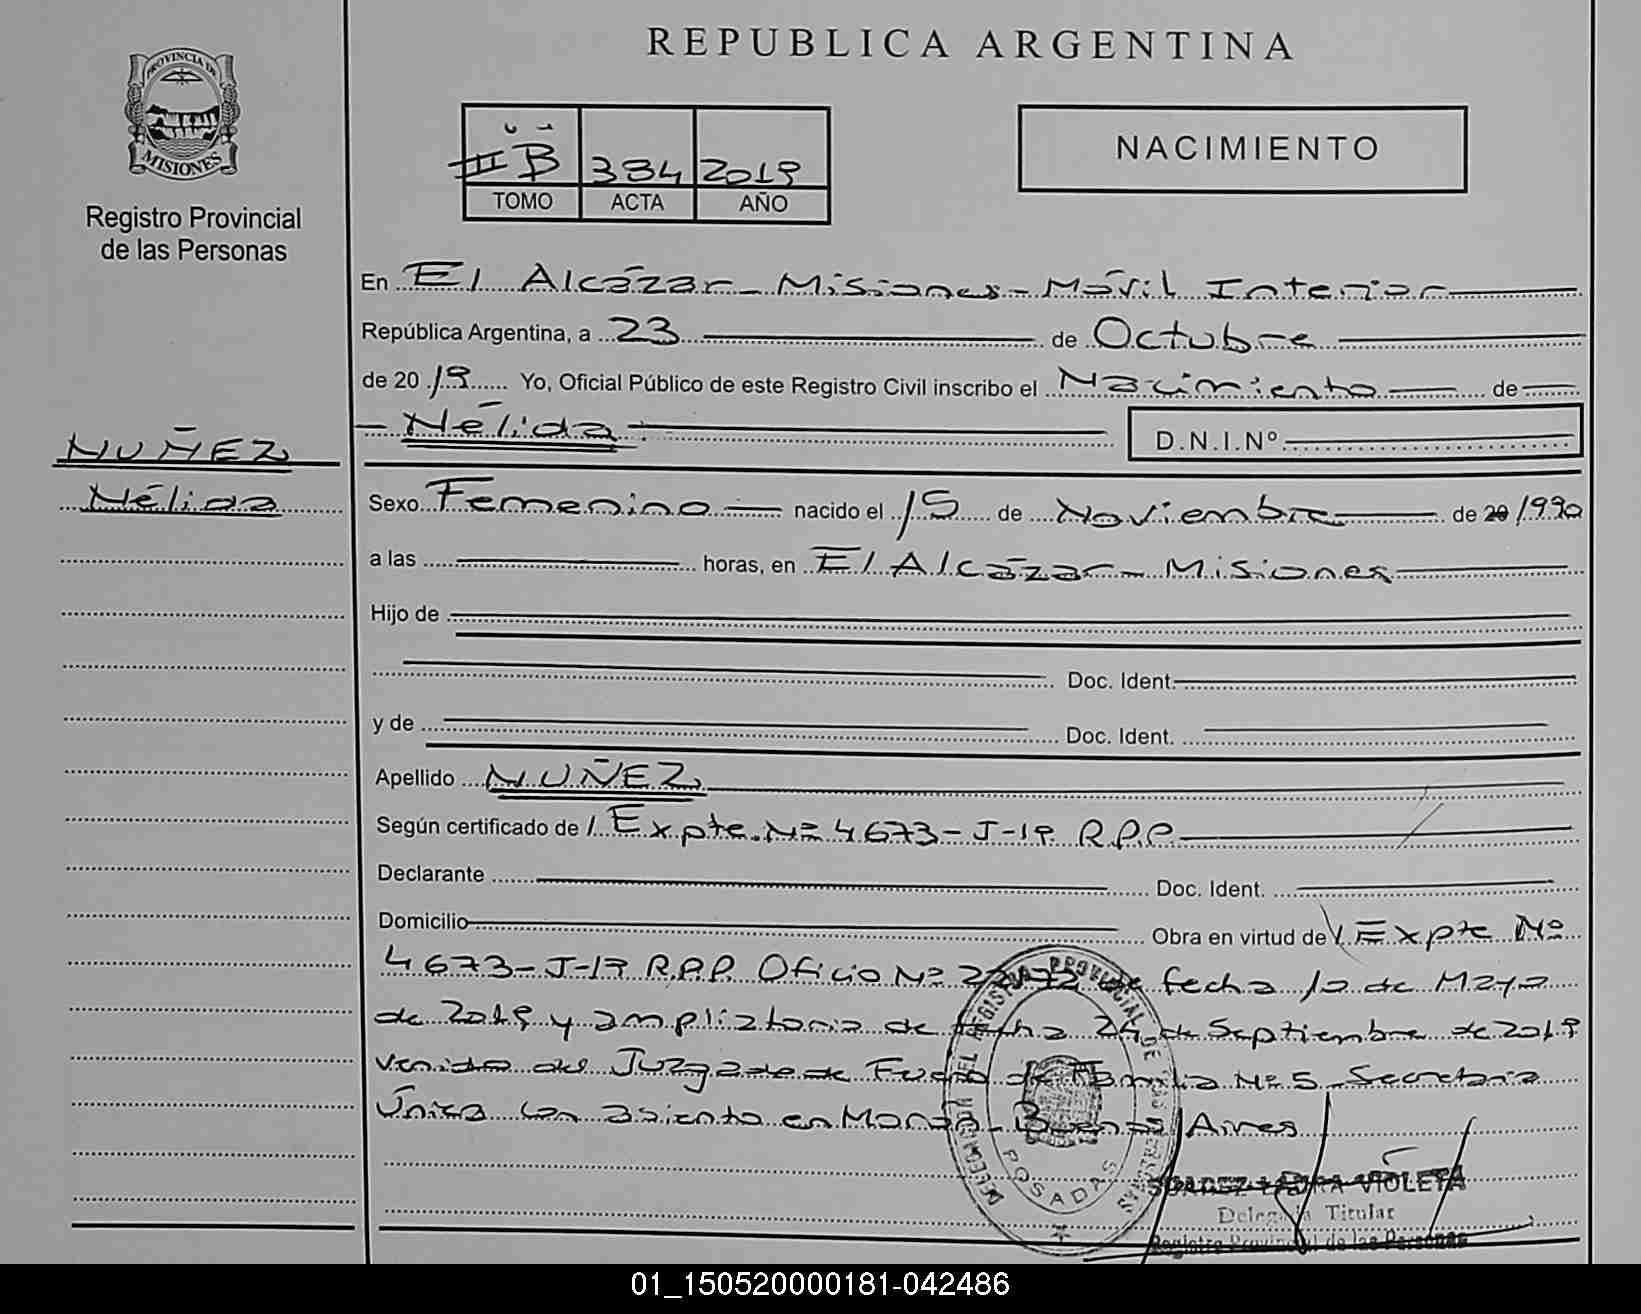 REPUBLICA ARGENTINA
PROVINCIA DE
MISIONES
Registro Provincial
de las Personas
III B 384 2019
TOMO ACTA AÑO
NACIMIENTO
En El Alcázar - Misiones - Móvil Interior
República Argentina, a 23 de Octubre
de 2019 Yo, Oficial Público de este Registro Civil inscribo el Nacimiento de
Nélida D.N.I.Nº
NUÑEZ
Nélida
Sexo Femenino nacido el 15 de Noviembre de 20 1990
a las horas, en El Alcázar - Misiones
Hijo de
Doc. Ident.
y de Doc. Ident.
Apellido NUÑEZ
Según certificado de / Expte. Nº 4673-J-19 R.P.P.
Declarante Doc. Ident.
Domicilio Obra en virtud de / Expte Nº
4673-J-19 R.P.P. Oficio Nº de fecha 10 de Mayo
de 2019 y ampliatoria de fecha 24 de Septiembre de 2019
venido del Juzgado de Fuero de Familia Nº 5 Secretaria
Única con asiento en Morón - Buenos Aires
DIRECCION DEL REGISTRO PROVINCIAL DE LAS PERSONAS
POSADAS
SUAREZ LAURA VIOLETA
Delegada Titular
Registro Provincial de las Personas
01_150520000181-042486